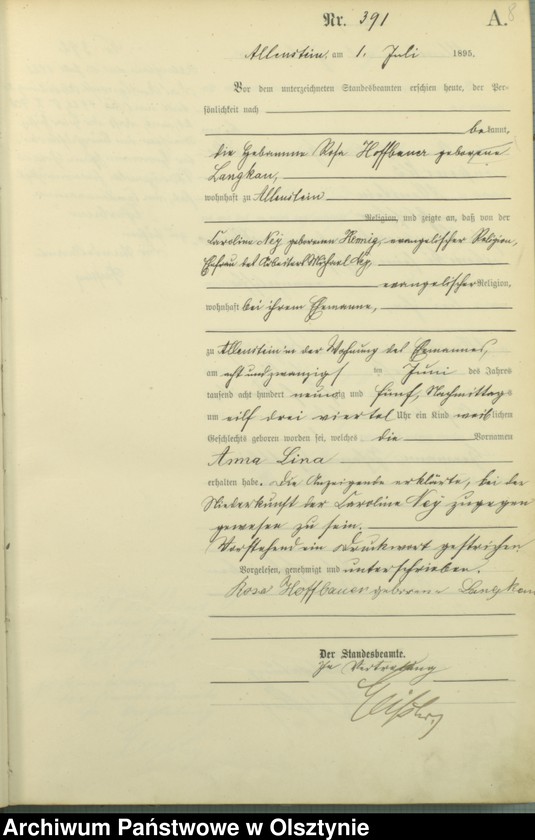 Nr. 391
A. 8
Allenstein, am 1. Juli 1895.
Vor dem unterzeichneten Standesbeamten erschien heute, der Per-
sönlichkeit nach
bekannt,
die Hebamme Rosa Hoffbauer geborene
Langkau,
wohnhaft zu Allenstein
Religion, und zeigte an, daß von der
Caroline Ney geborenen Hennig, evangelischer Religion,
Ehefrau des Arbeiters Michael Ney,
evangelischer Religion,
wohnhaft bei ihrem Ehemanne,
zu Allenstein in der Wohnung des Ehemannes,
am acht und zwanzigsten Juni des Jahres
tausend acht hundert neunzig und fünf, Nachmittags
um eilf drei viertel Uhr ein Kind weiblichen
Geschlechts geboren worden sei, welches die Vornamen
Anna Lina
erhalten habe. Die Anzeigende erklärte, bei der
Niederkunft der Caroline Ney zugegen
gewesen zu sein.
Vorstehend ein Druckwort gestrichen
Vorgelesen, genehmigt und unterschrieben.
Rosa Hoffbauer geborene Langkau
Der Standesbeamte.
In Vertretung
Archiwum Państwowe w Olsztynie